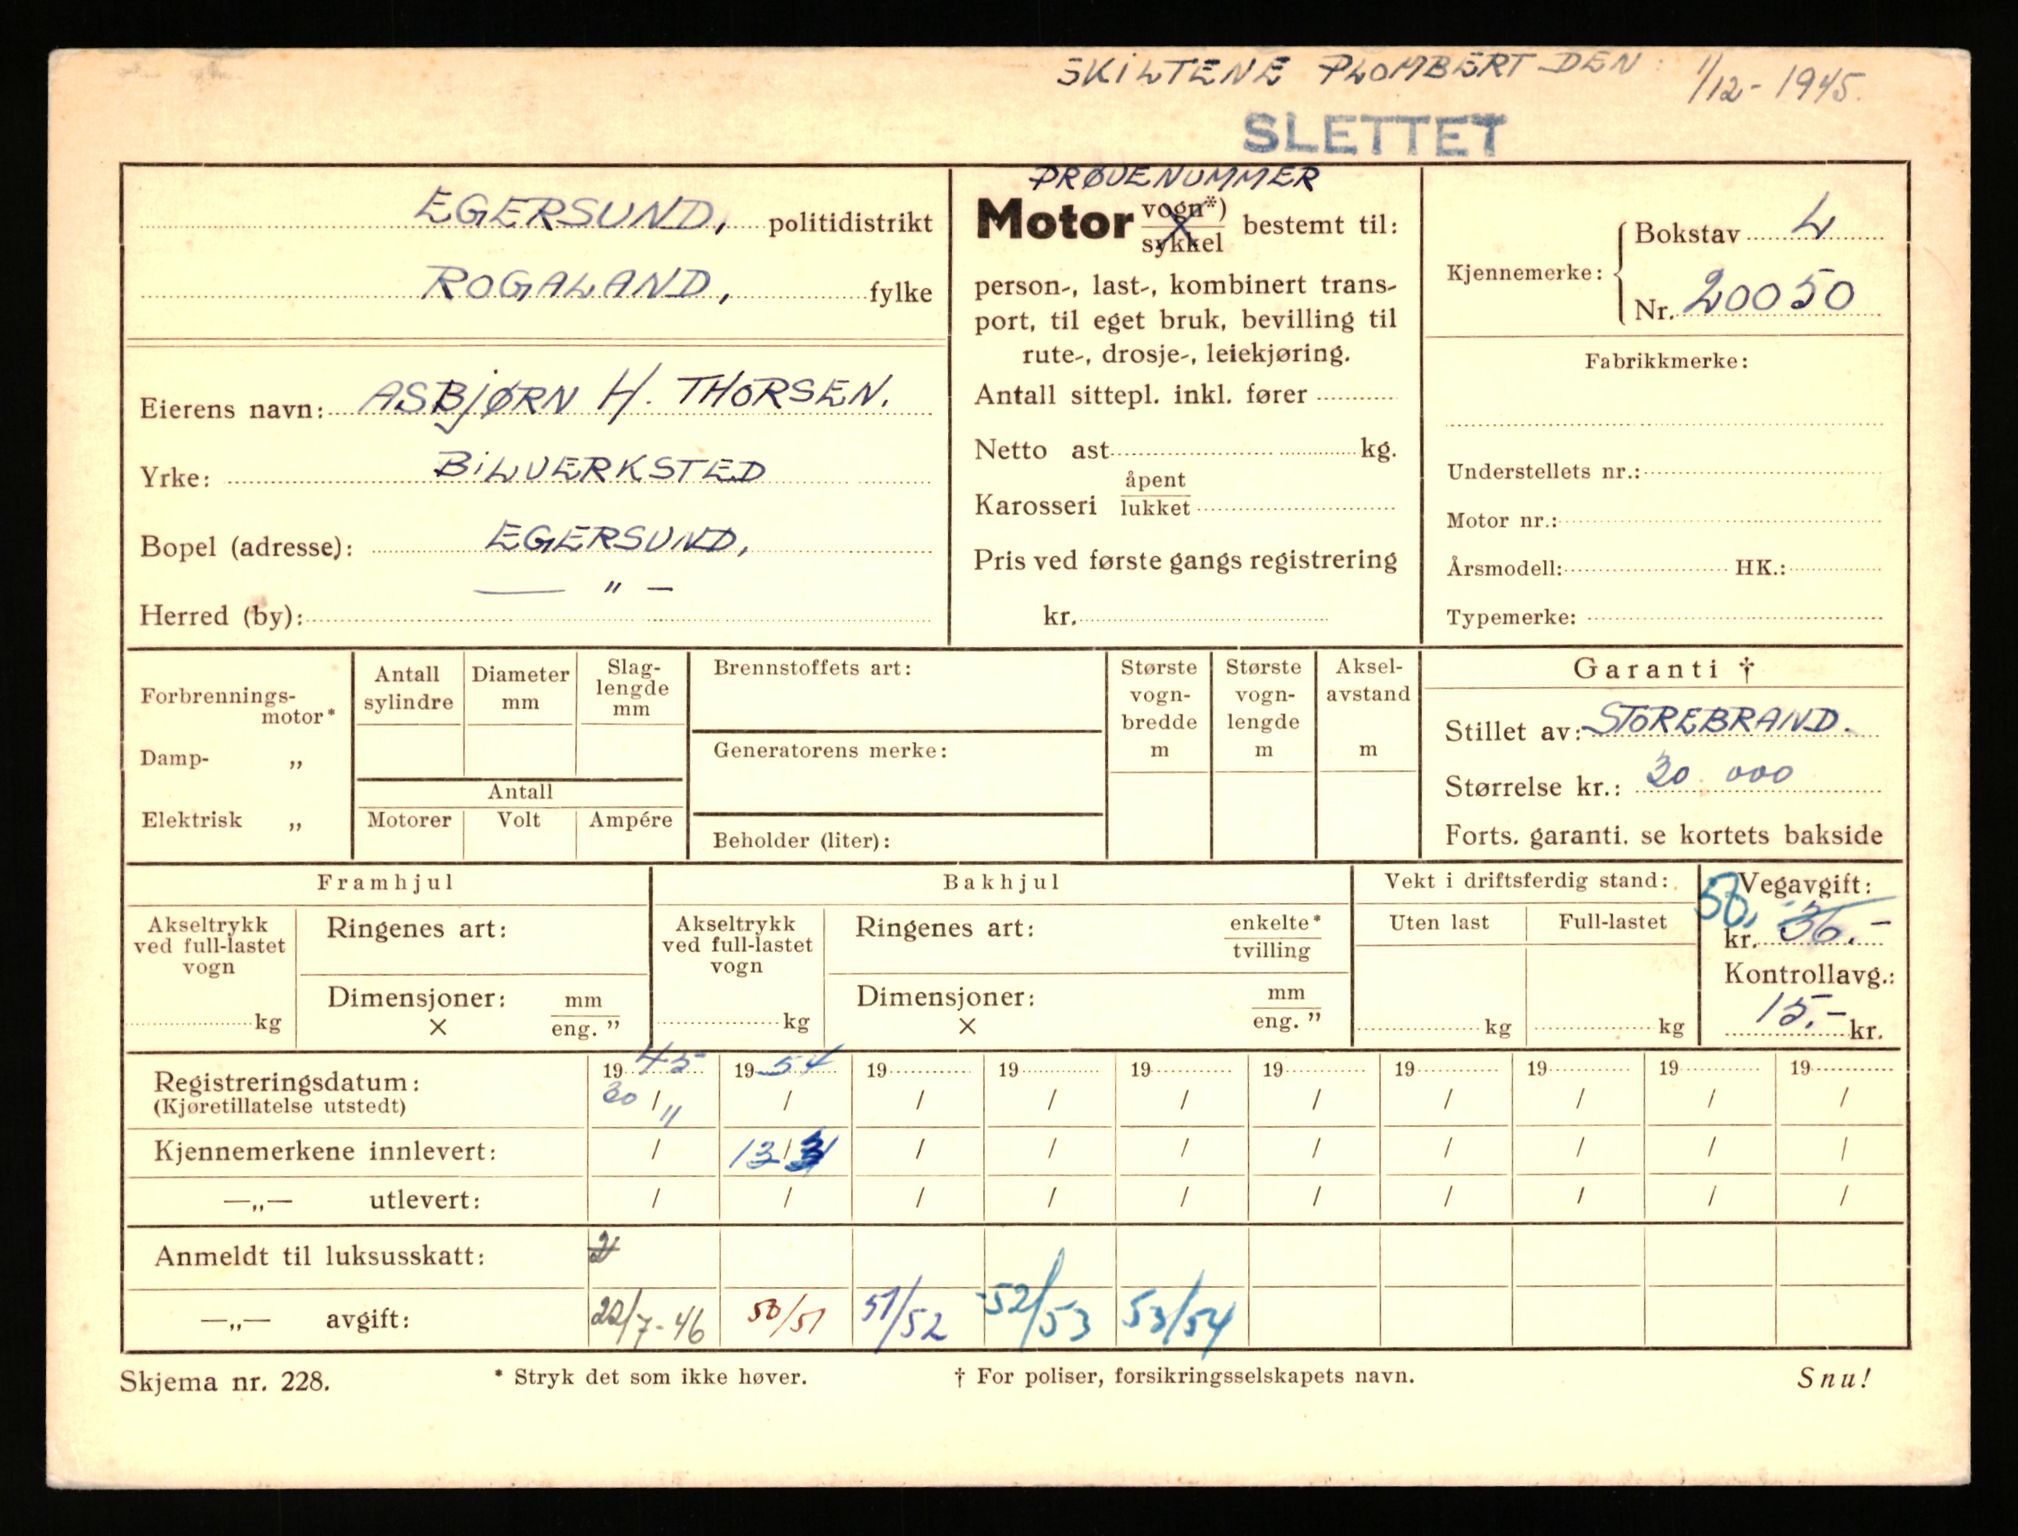 SKILTENE PLOMBERT DEN: 1/12-1945.
SLETTET
EGERSUND, politidistrikt
ROGALAND, fylke
Eierens navn: ASBJØRN H. THORSEN.
Yrke: BILVERKSTED
Bopel (adresse): EGERSUND,
— " —
Herred (by):
PRØVENUMMER
Motor vogn*) sykkel bestemt til:
person-, last-, kombinert trans-
port, til eget bruk, bevilling til
rute-, drosje-, leiekjøring.
Antall sittepl. inkl. fører
Netto ast kg.
Karosseri åpent lukket
Pris ved første gangs registrering
kr.
Kjennemerke:
Bokstav L
Nr. 20050
Fabrikkmerke:
Understellets nr.:
Motor nr.:
Årsmodell: HK.:
Typemerke:
Forbrennings-
motor*
Damp- „
Elektrisk „
Antall sylindre
Diameter mm
Slag-
lengde
mm
Antall
Motorer Volt Ampére
Brennstoffets art:
Generatorens merke:
Beholder (liter):
Største
vogn-
bredde
m
Største
vogn-
lengde
m
Aksel-
avstand
m
Garanti †
Stillet av: STOREBRAND.
Størrelse kr.: 20.000
Forts. garanti. se kortets bakside
Framhjul
Akseltrykk
ved full-lastet
vogn
kg
Ringenes art:
Dimensjoner: mm
× eng. ”
Bakhjul
Akseltrykk
ved full-lastet
vogn
kg
Ringenes art: enkelte*
tvilling
Dimensjoner: mm
× eng. ”
Vekt i driftsferdig stand:
Uten last Full-lastet
kg kg
Vegavgift:
kr. 36.-
Kontrollavg.:
15.- kr.
19 45 19 54 19 19 19 19 19 19 19 19
Registreringsdatum: 30 / 11 / / / / / / / / /
(Kjøretillatelse utstedt)
Kjennemerkene innlevert: / 13 / 3 / / / / / / / /
—„— utlevert: / / / / / / / / / /
Anmeldt til luksusskatt:
—„— avgift: 22/7-46 50/51 51/52 52/53 53/54
Skjema nr. 228. * Stryk det som ikke høver. † For poliser, forsikringsselskapets navn. Snu!